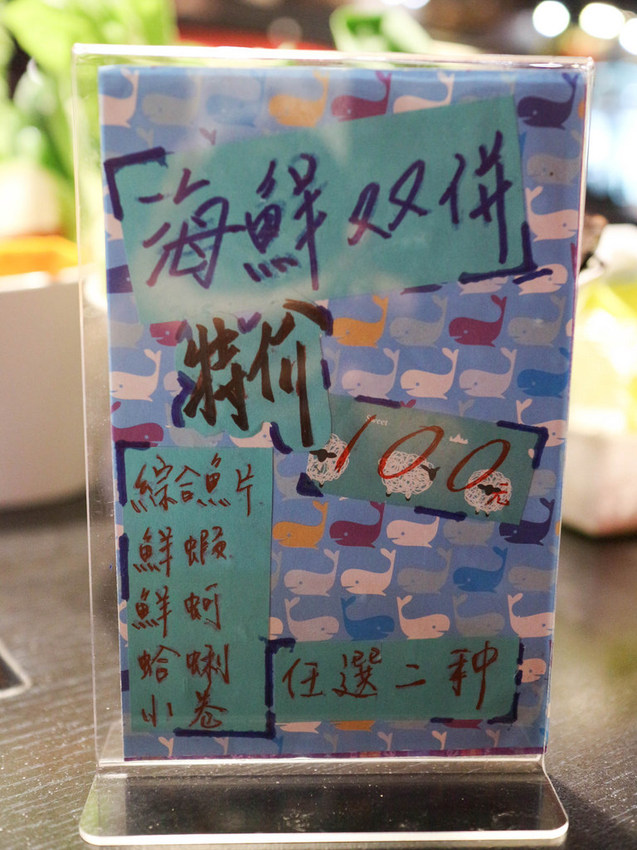 海鮮双併
特价
Sweet
100元
綜合魚片
鮮蝦
鮮蚵
蛤蜊
小卷
任選二种